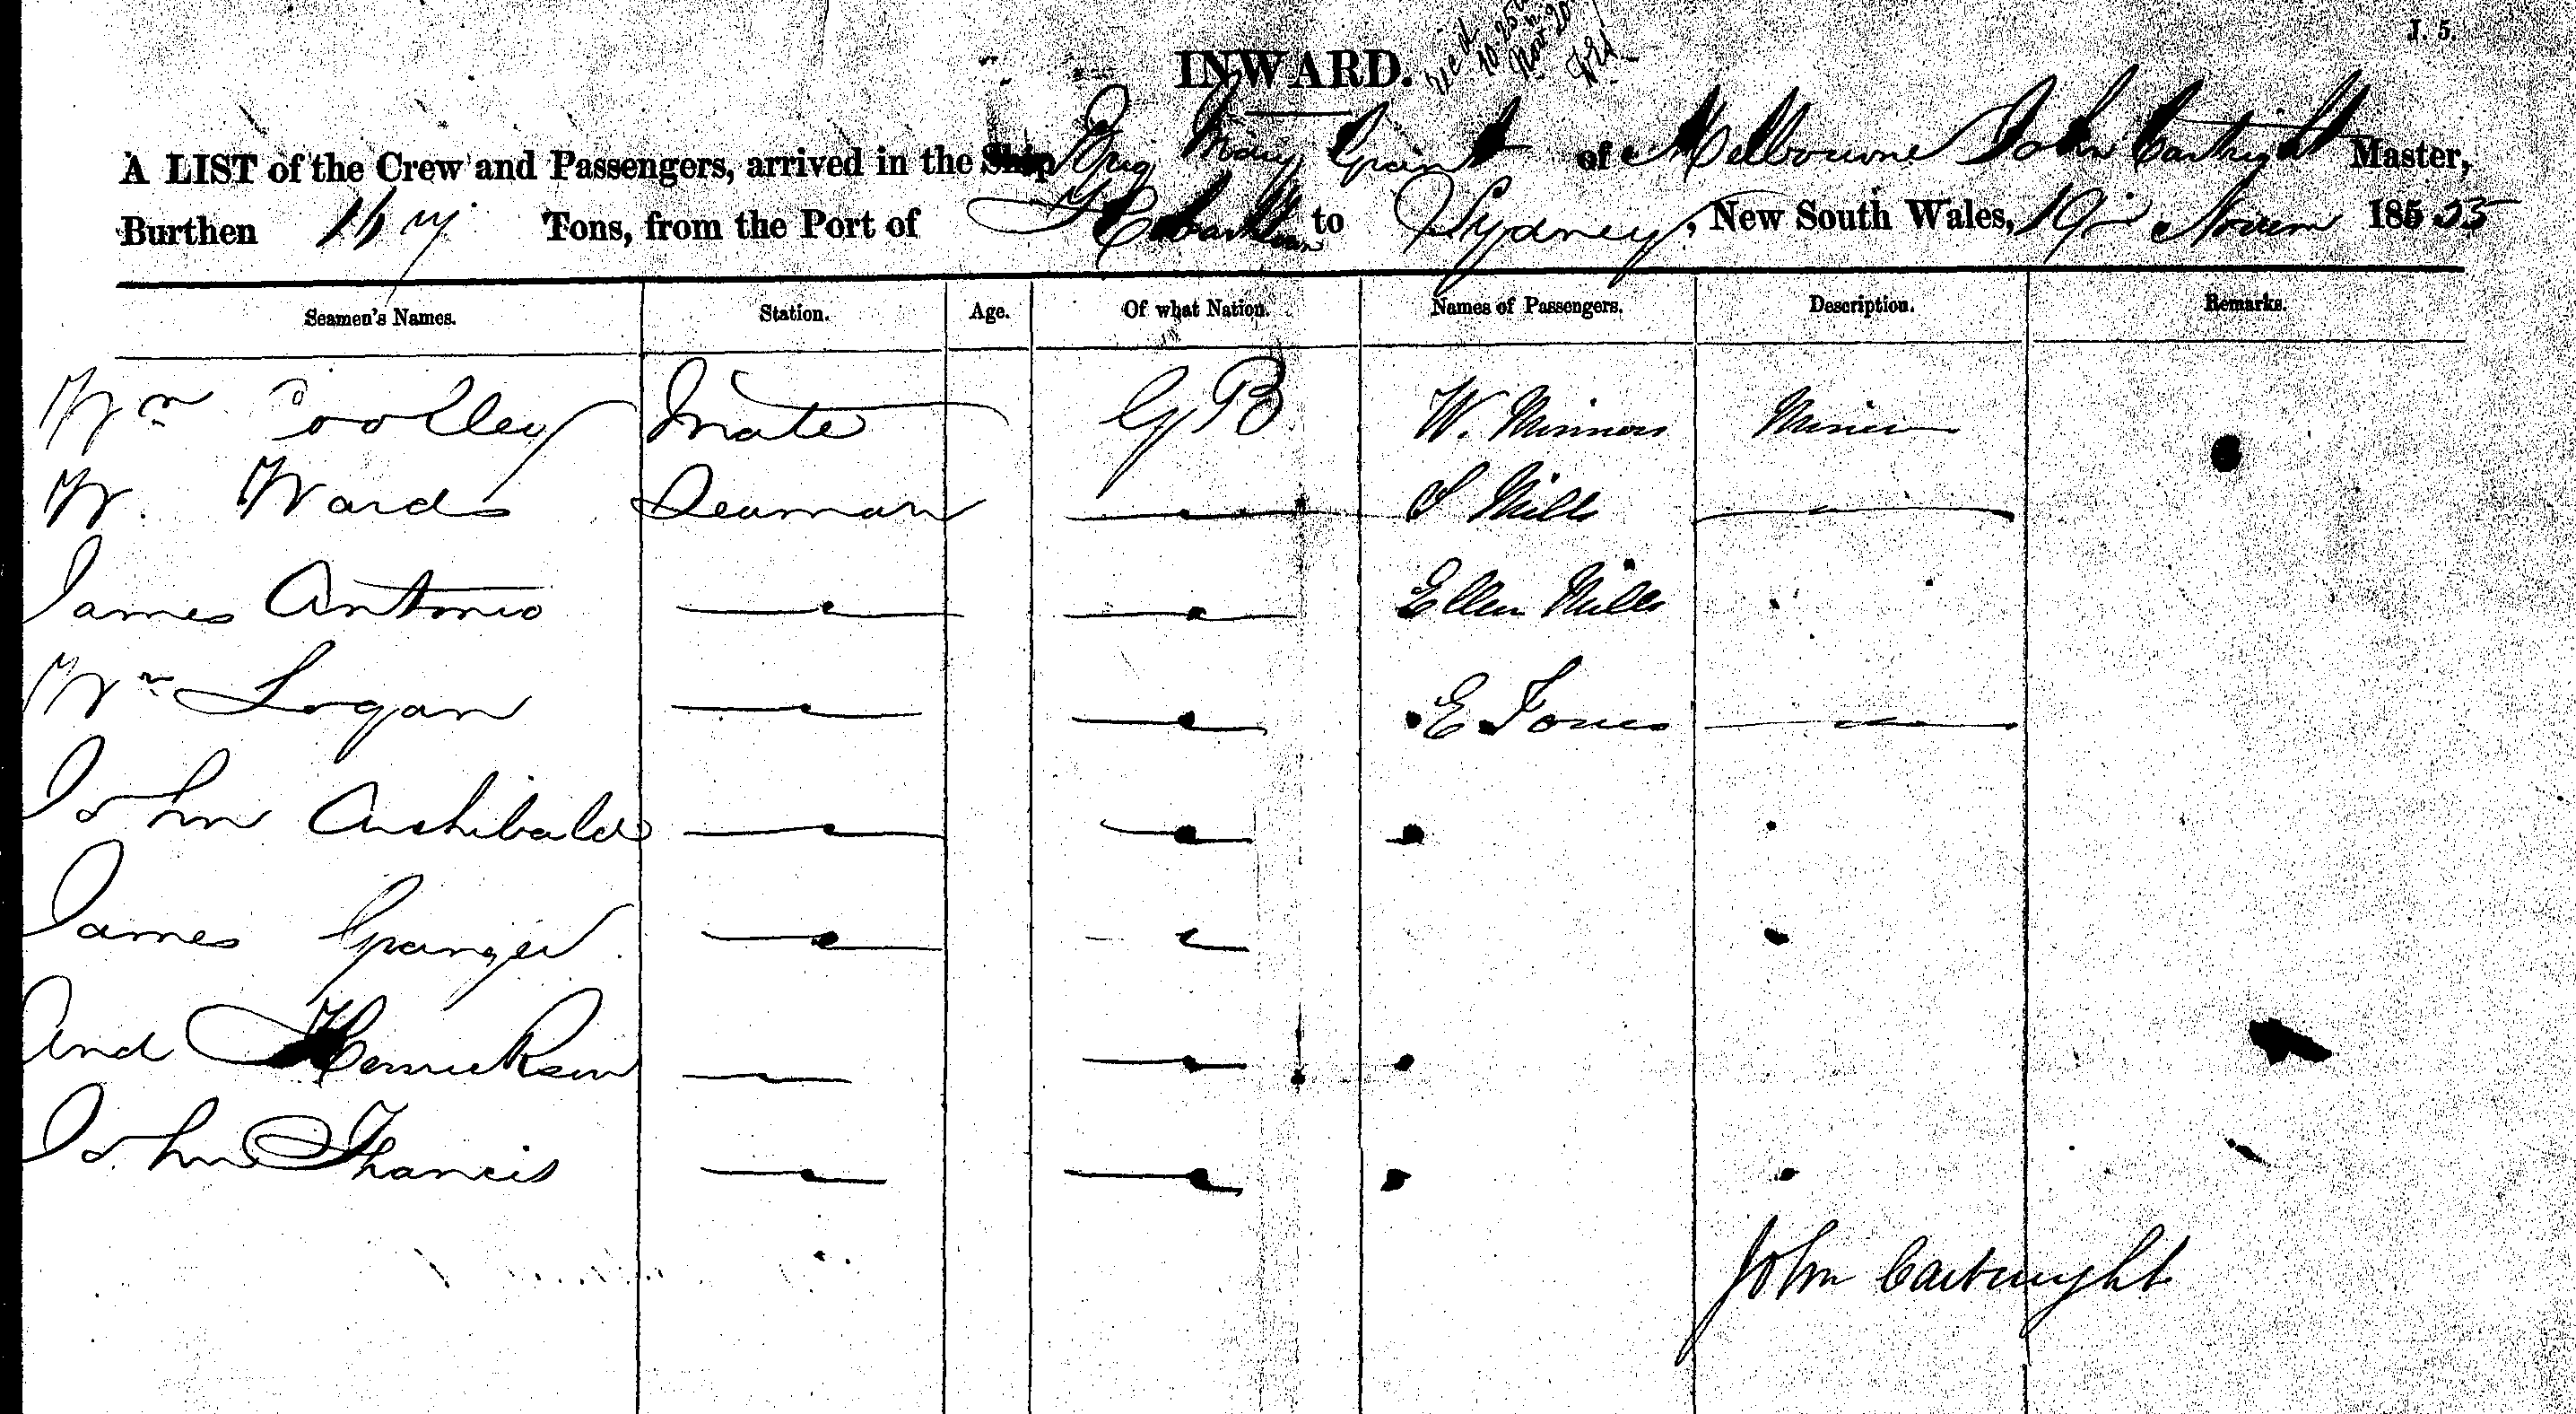 J. 5.
INWARD.
A LIST of the Crew and Passengers, arrived in the Ship Brig Mary Grant of Melbourne John Cartright Master,
Burthen Tons, from the Port of Hobart Town to Sydney, New South Wales, 19 Novem 185
Seamen's Names. Station. Age. Of what Nation. Names of Passengers. Description. Remarks.
Wm Coolley Mate G B W. Minnors Miner
W. Wards Seaman S Mills
James Antonio Ellen Mills
Wm Logan E Jones
John Archibald
James Granger
And Hennickson
John Francis
John Cartwright